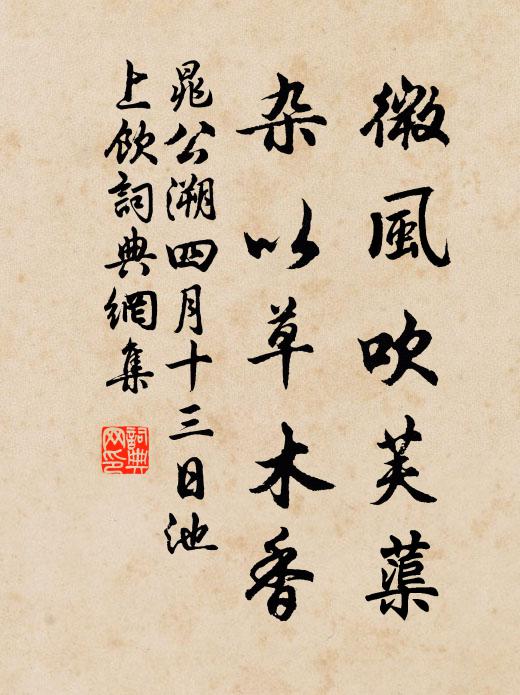 微風吹芙蕖
杂以草木香
晁公溯四月十三日池
上飲詞典網集
詞典
网印